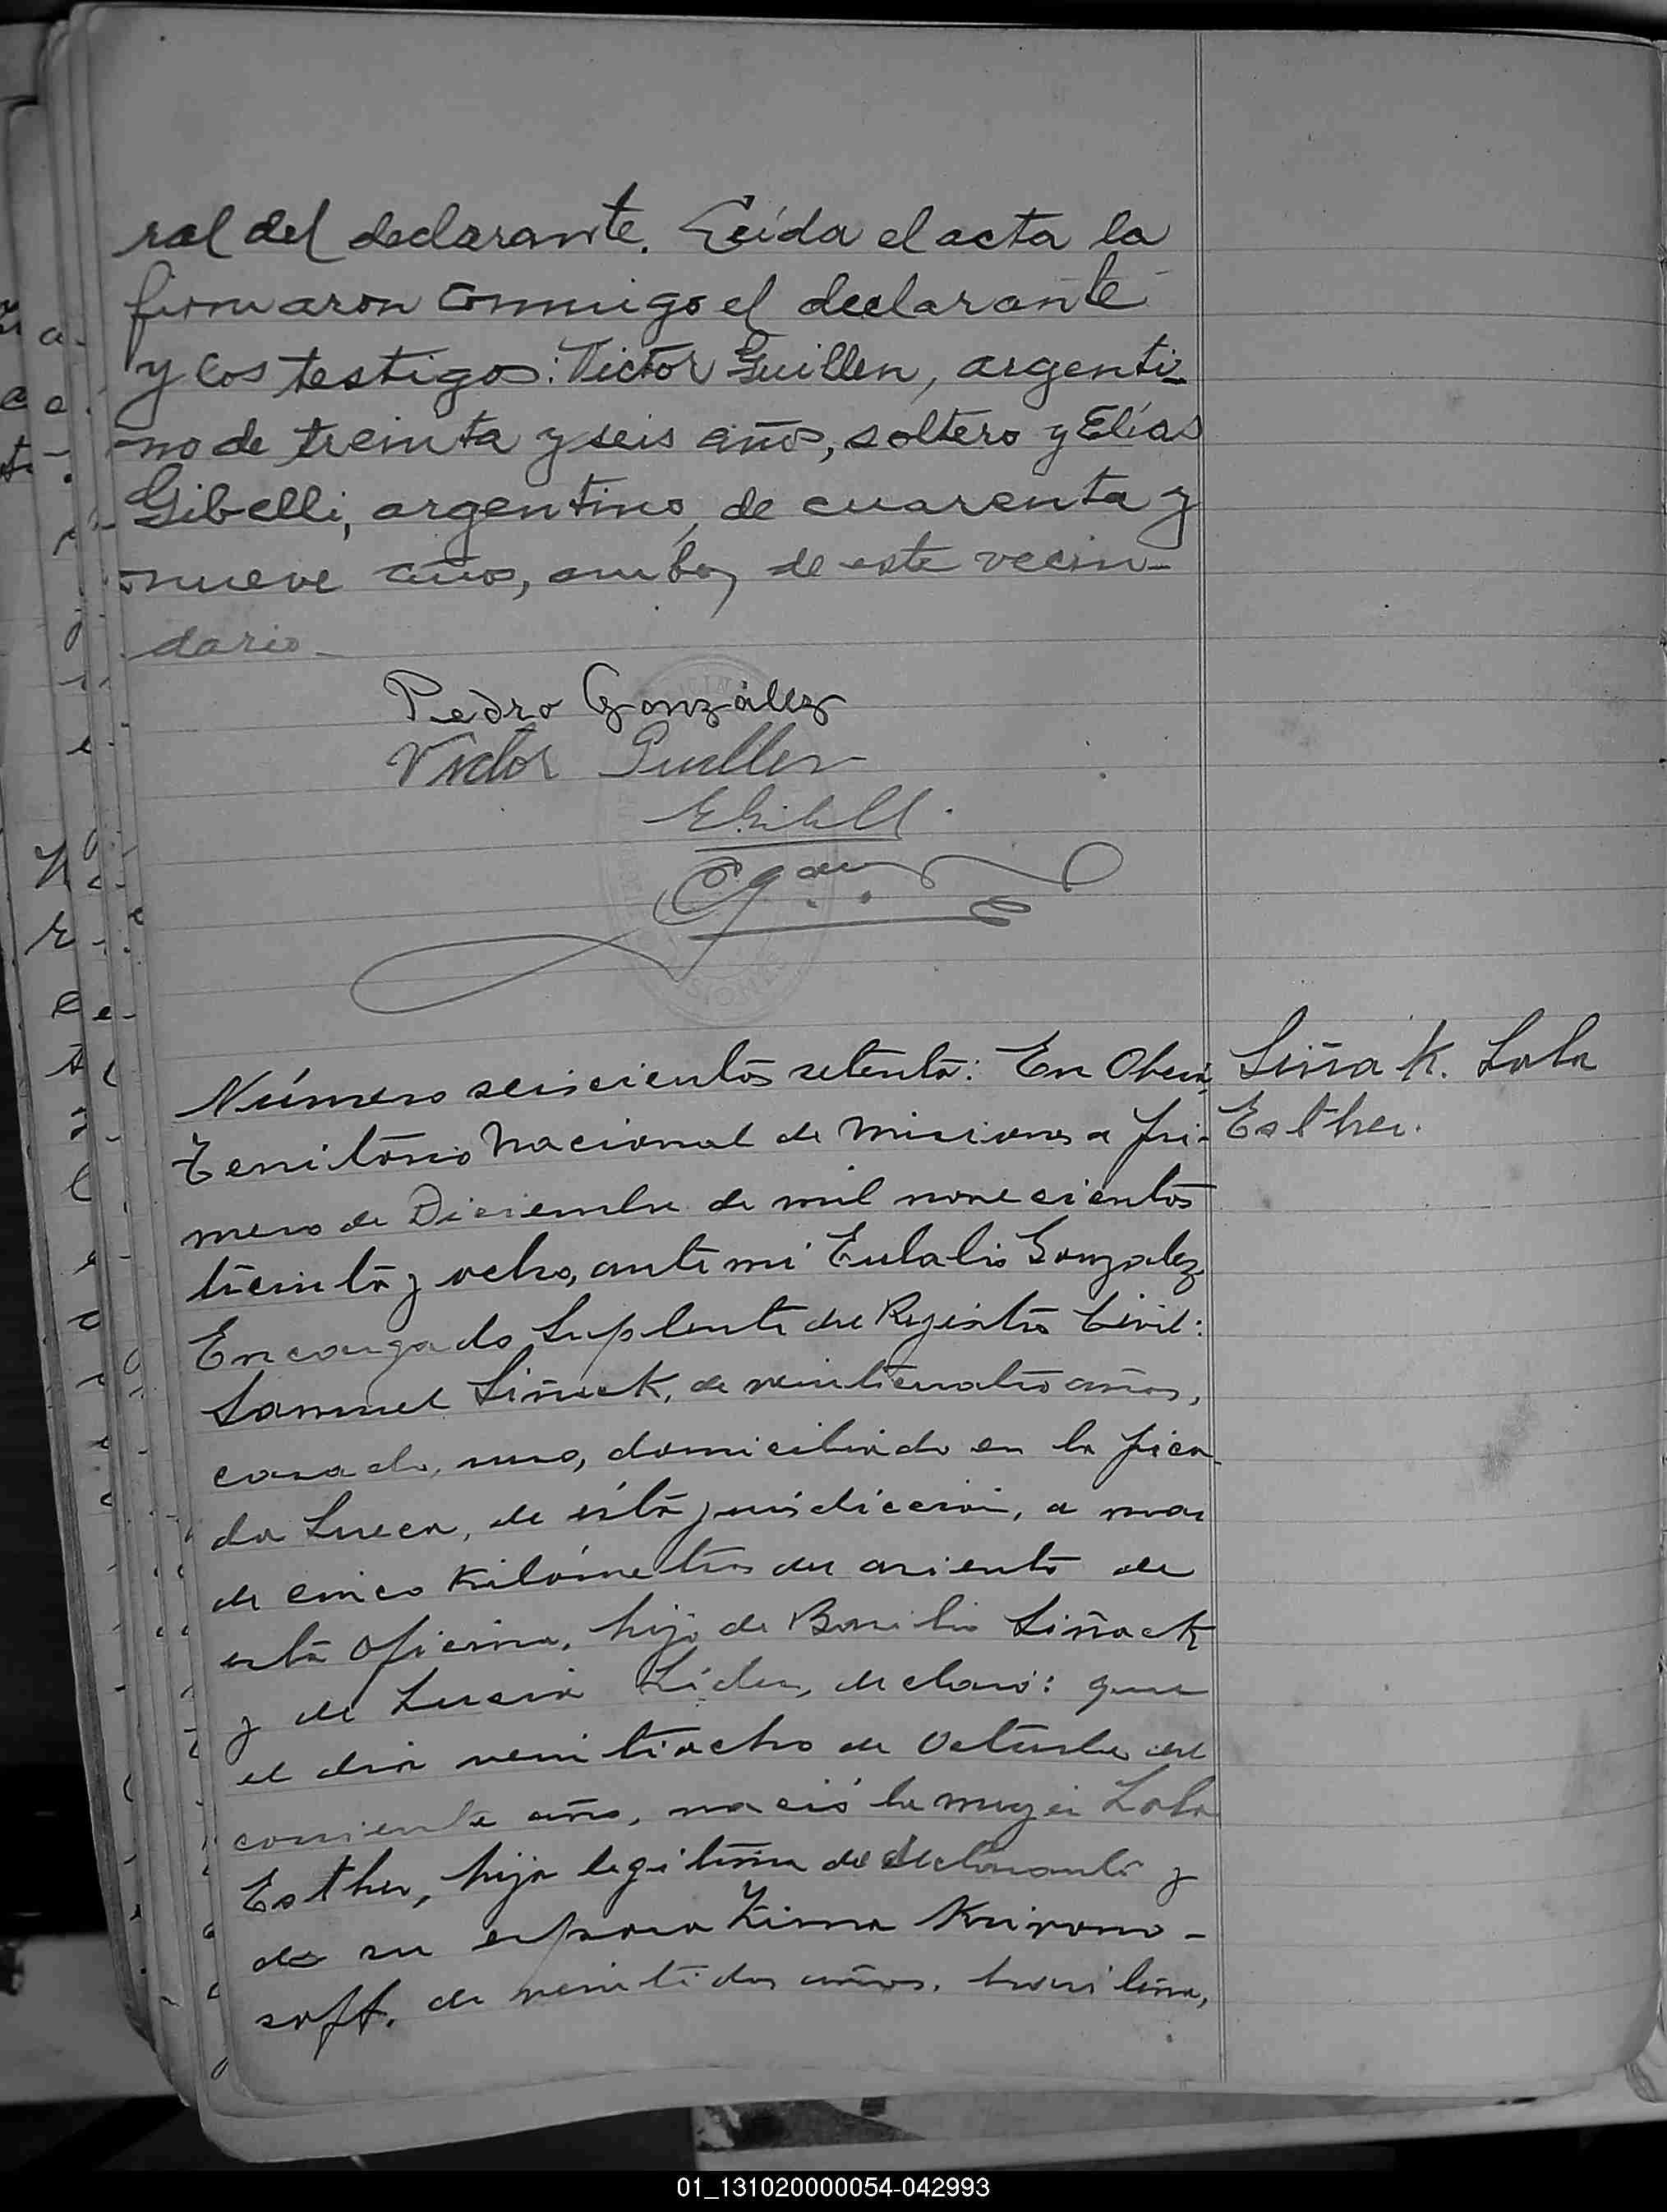 ral del declarante. Leída el acta la
firmaron conmigo el declarante
y los testigos: Victor Guillen, argenti-
no de treinta y seis años, soltero y Elías
Gibelli, argentino, de cuarenta y
nueve años, ambos de este vecin-
dario
Pedro González
Victor Guillen
EGibelli
Número seiscientos setenta: En Oberá,
Territorio Nacional de Misiones a pri-
mero de Diciembre de mil novecientos
treinta y ocho, ante mi Eulalio Gonzalez
Encargado Suplente del Registro Civil:
Samuel Siñuck, de veinticuatro años,
casado, ruso, domiciliado en la pica-
da Sueca, de ésta jurisdiccion, a mas
de cinco Kilómetros del asiento de
esta Oficina, hijo de Basilio Siñack
y de Lucia declaró: que
el dia veintiocho de Octubre del
corriente año, nació la mujer Lola
Esther, hija legitima del declarante y
de su esposa Zina Krivono-
soff, de veintidos años, brasileña,
Siñak. Lola
Esther.
01_131020000054-042993